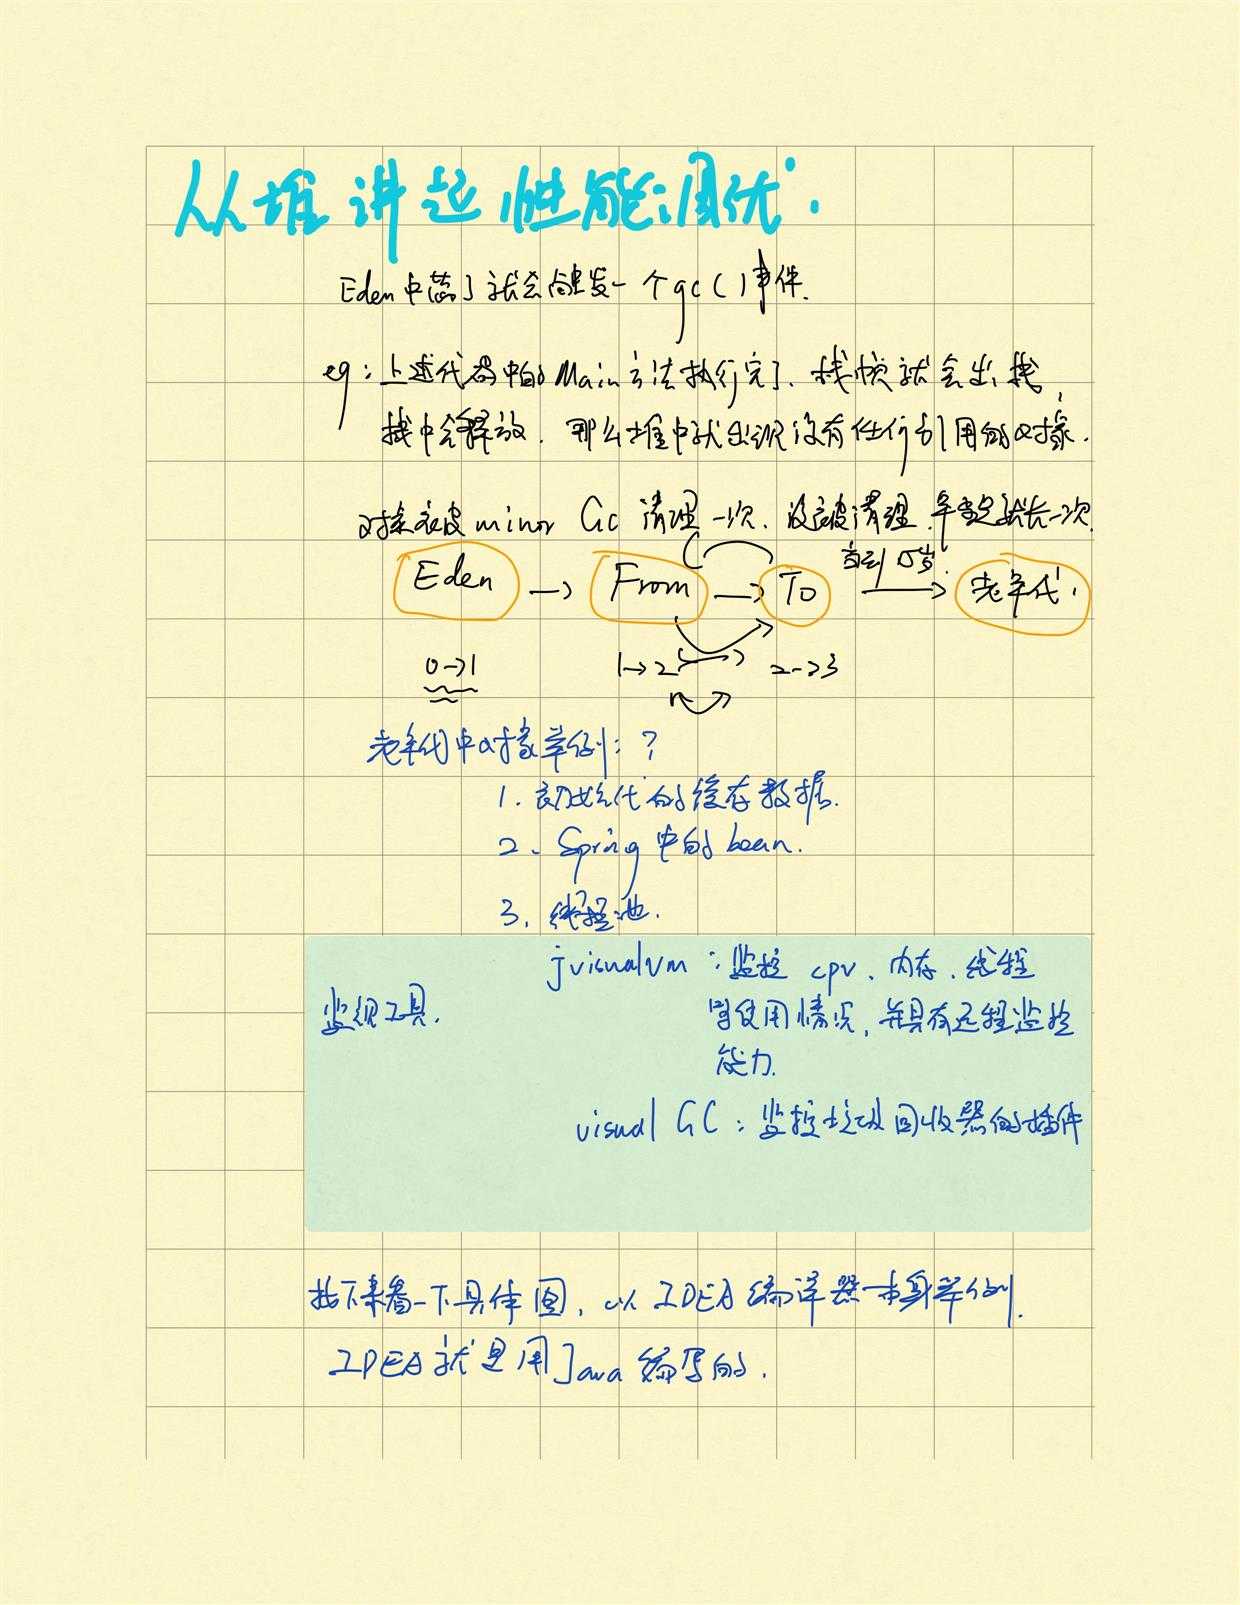 从堆讲起性能调优.
Eden中满了就会触发一个gc()事件.
eg:上述代码中的Main方法执行完了、栈帧就会出栈,
栈中会释放. 那么堆中就出现没有任何引用的对象.
对象被minor GC清理一次、没被清理,年龄就长一次.
直到15岁.
Eden → From → To → 老年代.
0→1 1→2 2→3
老年代中对象举例:?
1.初始化的缓存数据.
2、Spring中的bean.
3、线程池.
jvisualvm:监控cpu、内存、线程
监视工具.
等使用情况,并具有远程监控
能力.
visual GC:监控垃圾回收器的插件
接下来看一下具体图,以IDEA编译器本身举例.
IDEA就是用Java编写的.